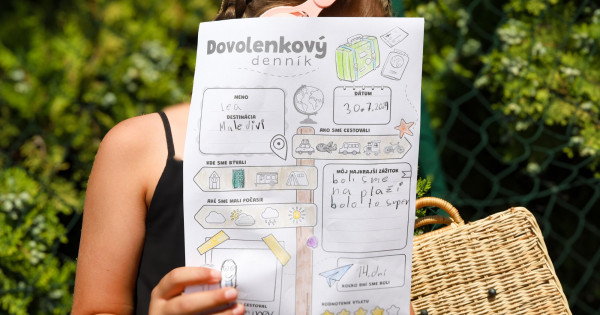 Dovolenkový
denník
MENO
Lea
DESTINÁCIA
Maledivi
DÁTUM
30.7.2024
AKO SME CESTOVALI
KDE SME BÝVALI
MÔJ NAJKRAJŠÍ ZÁŽITOK
boli sme
na pláži
bolo to super
AKÉ SME MALI POČASIE
14. dni
KOĽKO DNÍ SME BOLI
CESTOVAL
HODNOTENIE VÝLETU